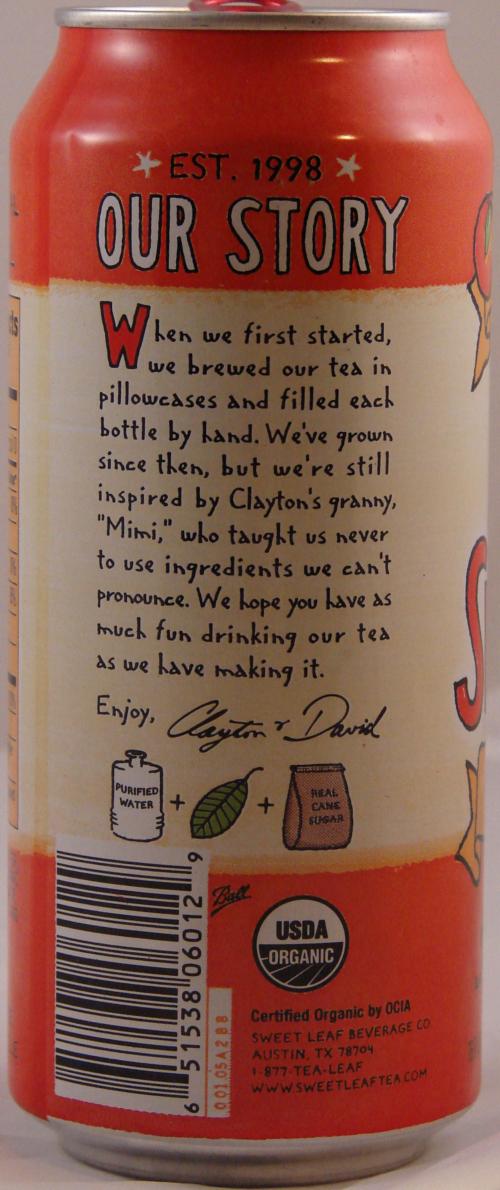 EST. 1998
OUR STORY
When we first started,
we brewed our tea in
pillowcases and filled each
bottle by hand. We've grown
since then, but we're still
inspired by Clayton's granny,
"Mimi," who taught us never
to use ingredients we can't
pronounce. We hope you have as
much fun drinking our tea
as we have making it.
Enjoy, Clayton & David
PURIFIED
WATER
+
+
REAL
CANE
SUGAR
6 51538 06012 9
Ball
USDA
ORGANIC
Certified Organic by OCIA
SWEET LEAF BEVERAGE CO.
AUSTIN, TX 78704
1-877-TEA-LEAF
WWW.SWEETLEAFTEA.COM